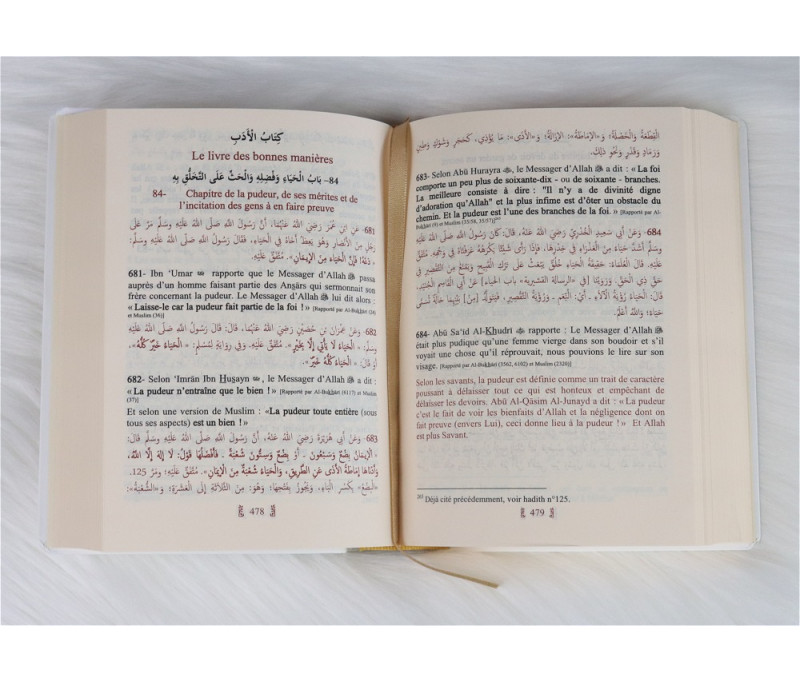 كِتَابُ الْأَدَبِ
Le livre des bonnes manières
84- بَابُ الْحَيَاءِ وَفَضْلِهِ وَالْحَثِّ عَلَى التَّخَلُّقِ بِهِ
84- Chapitre de la pudeur, de ses mérites et de
l'incitation des gens à en faire preuve
681- عَنِ ابْنِ عُمَرَ رَضِيَ اللَّهُ عَنْهُمَا، أَنَّ رَسُولَ اللَّهِ صَلَّى اللَّهُ عَلَيْهِ وَسَلَّمَ مَرَّ عَلَى
رَجُلٍ مِنَ الْأَنْصَارِ وَهُوَ يَعِظُ أَخَاهُ فِي الْحَيَاءِ، فَقَالَ رَسُولُ اللَّهِ صَلَّى اللَّهُ عَلَيْهِ وَسَلَّمَ:
« دَعْهُ؛ فَإِنَّ الْحَيَاءَ مِنَ الْإِيمَانِ». مُتَّفَقٌ عَلَيْهِ.
681- Ibn 'Umar rapporte que le Messager d'Allah ﷺ passa
auprès d'un homme faisant partie des Anṣârs qui sermonnait son
frère concernant la pudeur. Le Messager d'Allah ﷺ lui dit alors :
« Laisse-le car la pudeur fait partie de la foi ! » [Rapporté par Al-Bukhârî (24)
et Muslim (36)]
682- وَعَنْ عِمْرَانَ بْنِ حُصَيْنٍ رَضِيَ اللَّهُ عَنْهُمَا، قَالَ: قَالَ رَسُولُ اللَّهِ صَلَّى اللَّهُ عَلَيْهِ
وَسَلَّمَ: « الْحَيَاءُ لَا يَأْتِي إِلَّا بِخَيْرٍ». مُتَّفَقٌ عَلَيْهِ. وَفِي رِوَايَةٍ لِمُسْلِمٍ: « الْحَيَاءُ خَيْرٌ كُلُّهُ »
أَوْ قَالَ: « الْحَيَاءُ كُلُّهُ خَيْرٌ ».
682- Selon 'Imrân Ibn Ḥuṣayn, le Messager d'Allah ﷺ a dit :
« La pudeur n'entraîne que le bien ! » [Rapporté par Al-Bukhârî (6117) et Muslim
(37)]
Et selon une version de Muslim : «La pudeur toute entière (sous
tous ses aspects) est un bien ! »
683- وَعَنْ أَبِي هُرَيْرَةَ رَضِيَ اللَّهُ عَنْهُ، أَنَّ رَسُولَ اللَّهِ صَلَّى اللَّهُ عَلَيْهِ وَسَلَّمَ قَالَ:
« الْإِيمَانُ بِضْعٌ وَسَبْعُونَ أَوْ بِضْعٌ وَسِتُّونَ شُعْبَةً ، فَأَفْضَلُهَا قَوْلُ: لَا إِلَهَ إِلَّا اللَّهُ،
وَأَدْنَاهَا إِمَاطَةُ الْأَذَى عَنِ الطَّرِيقِ، وَالْحَيَاءُ شُعْبَةٌ مِنَ الْإِيمَانِ». مُتَّفَقٌ عَلَيْهِ؛ وَمَرَّ 125.
«الْبِضْعُ» بِكَسْرِ الْبَاءِ، وَيَجُوزُ بِفَتْحِهَا؛ وَهُوَ: مِنَ الثَّلَاثَةِ إِلَى الْعَشَرَةِ؛ وَ«الشُّعْبَةُ»:
478
الْقِطْعَةُ وَالْخَصْلَةُ؛ وَ«الْإِمَاطَةُ»: الْإِزَالَةُ؛ وَ«الْأَذَى»: مَا يُؤْذِي، كَحَجَرٍ وَشَوْكٍ وَطِينٍ
وَرَمَادٍ وَقَذَرٍ وَنَحْوِ ذَلِكَ.
683- Selon Abû Hurayra, le Messager d'Allah ﷺ a dit : « La foi
comporte un peu plus de soixante-dix - ou de soixante - branches.
La meilleure consiste à dire : "Il n'y a de divinité digne
d'adoration qu'Allah" et la plus infime est d'ôter un obstacle du
chemin. Et la pudeur est l'une des branches de la foi. » [Rapporté par Al-
Bukhârî (9) et Muslim (35/58, 35/57)]
684- وَعَنْ أَبِي سَعِيدٍ الْخُدْرِيِّ رَضِيَ اللَّهُ عَنْهُ، قَالَ: كَانَ رَسُولُ اللَّهِ صَلَّى اللَّهُ عَلَيْهِ
وَسَلَّمَ أَشَدَّ حَيَاءً مِنَ الْعَذْرَاءِ فِي خِدْرِهَا، فَإِذَا رَأَى شَيْئًا يَكْرَهُهُ عَرَفْنَاهُ فِي وَجْهِهِ. مُتَّفَقٌ
عَلَيْهِ. قَالَ الْعُلَمَاءُ: حَقِيقَةُ الْحَيَاءِ خُلُقٌ يَبْعَثُ عَلَى تَرْكِ الْقَبِيحِ وَيَمْنَعُ مِنَ التَّقْصِيرِ فِي
حَقِّ ذِي الْحَقِّ. وَرَوَيْنَا [فِي «الرِّسَالَةِ الْقُشَيْرِيَّةِ» بَابِ الْحَيَاءِ] عَنْ أَبِي الْقَاسِمِ الْجُنَيْدِ،
قَالَ: الْحَيَاءُ رُؤْيَةُ الْآلَاءِ - أَيِ: النِّعَمِ - وَرُؤْيَةُ التَّقْصِيرِ، فَيَتَوَلَّدُ [مِنْ] بَيْنِهِمَا حَالَةٌ تُسَمَّى
حَيَاءً؛ وَاللَّهُ أَعْلَمُ.
684- Abû Sa'îd Al-Khudrî rapporte : Le Messager d'Allah ﷺ
était plus pudique qu'une femme vierge dans son boudoir et s'il
voyait une chose qu'il réprouvait, nous pouvions le lire sur son
visage. [Rapporté par Al-Bukhârî (3562, 6102) et Muslim (2320)]
Selon les savants, la pudeur est définie comme un trait de caractère
poussant à délaisser tout ce qui est honteux et empêchant de
délaisser les devoirs. Abû Al-Qâsim Al-Junayd a dit : « La pudeur
c'est le fait de voir les bienfaits d'Allah et la négligence dont on
fait preuve (envers Lui), ceci donne lieu à la pudeur ! » Et Allah
est plus Savant.
Déjà cité précédemment, voir hadith n°125.
479